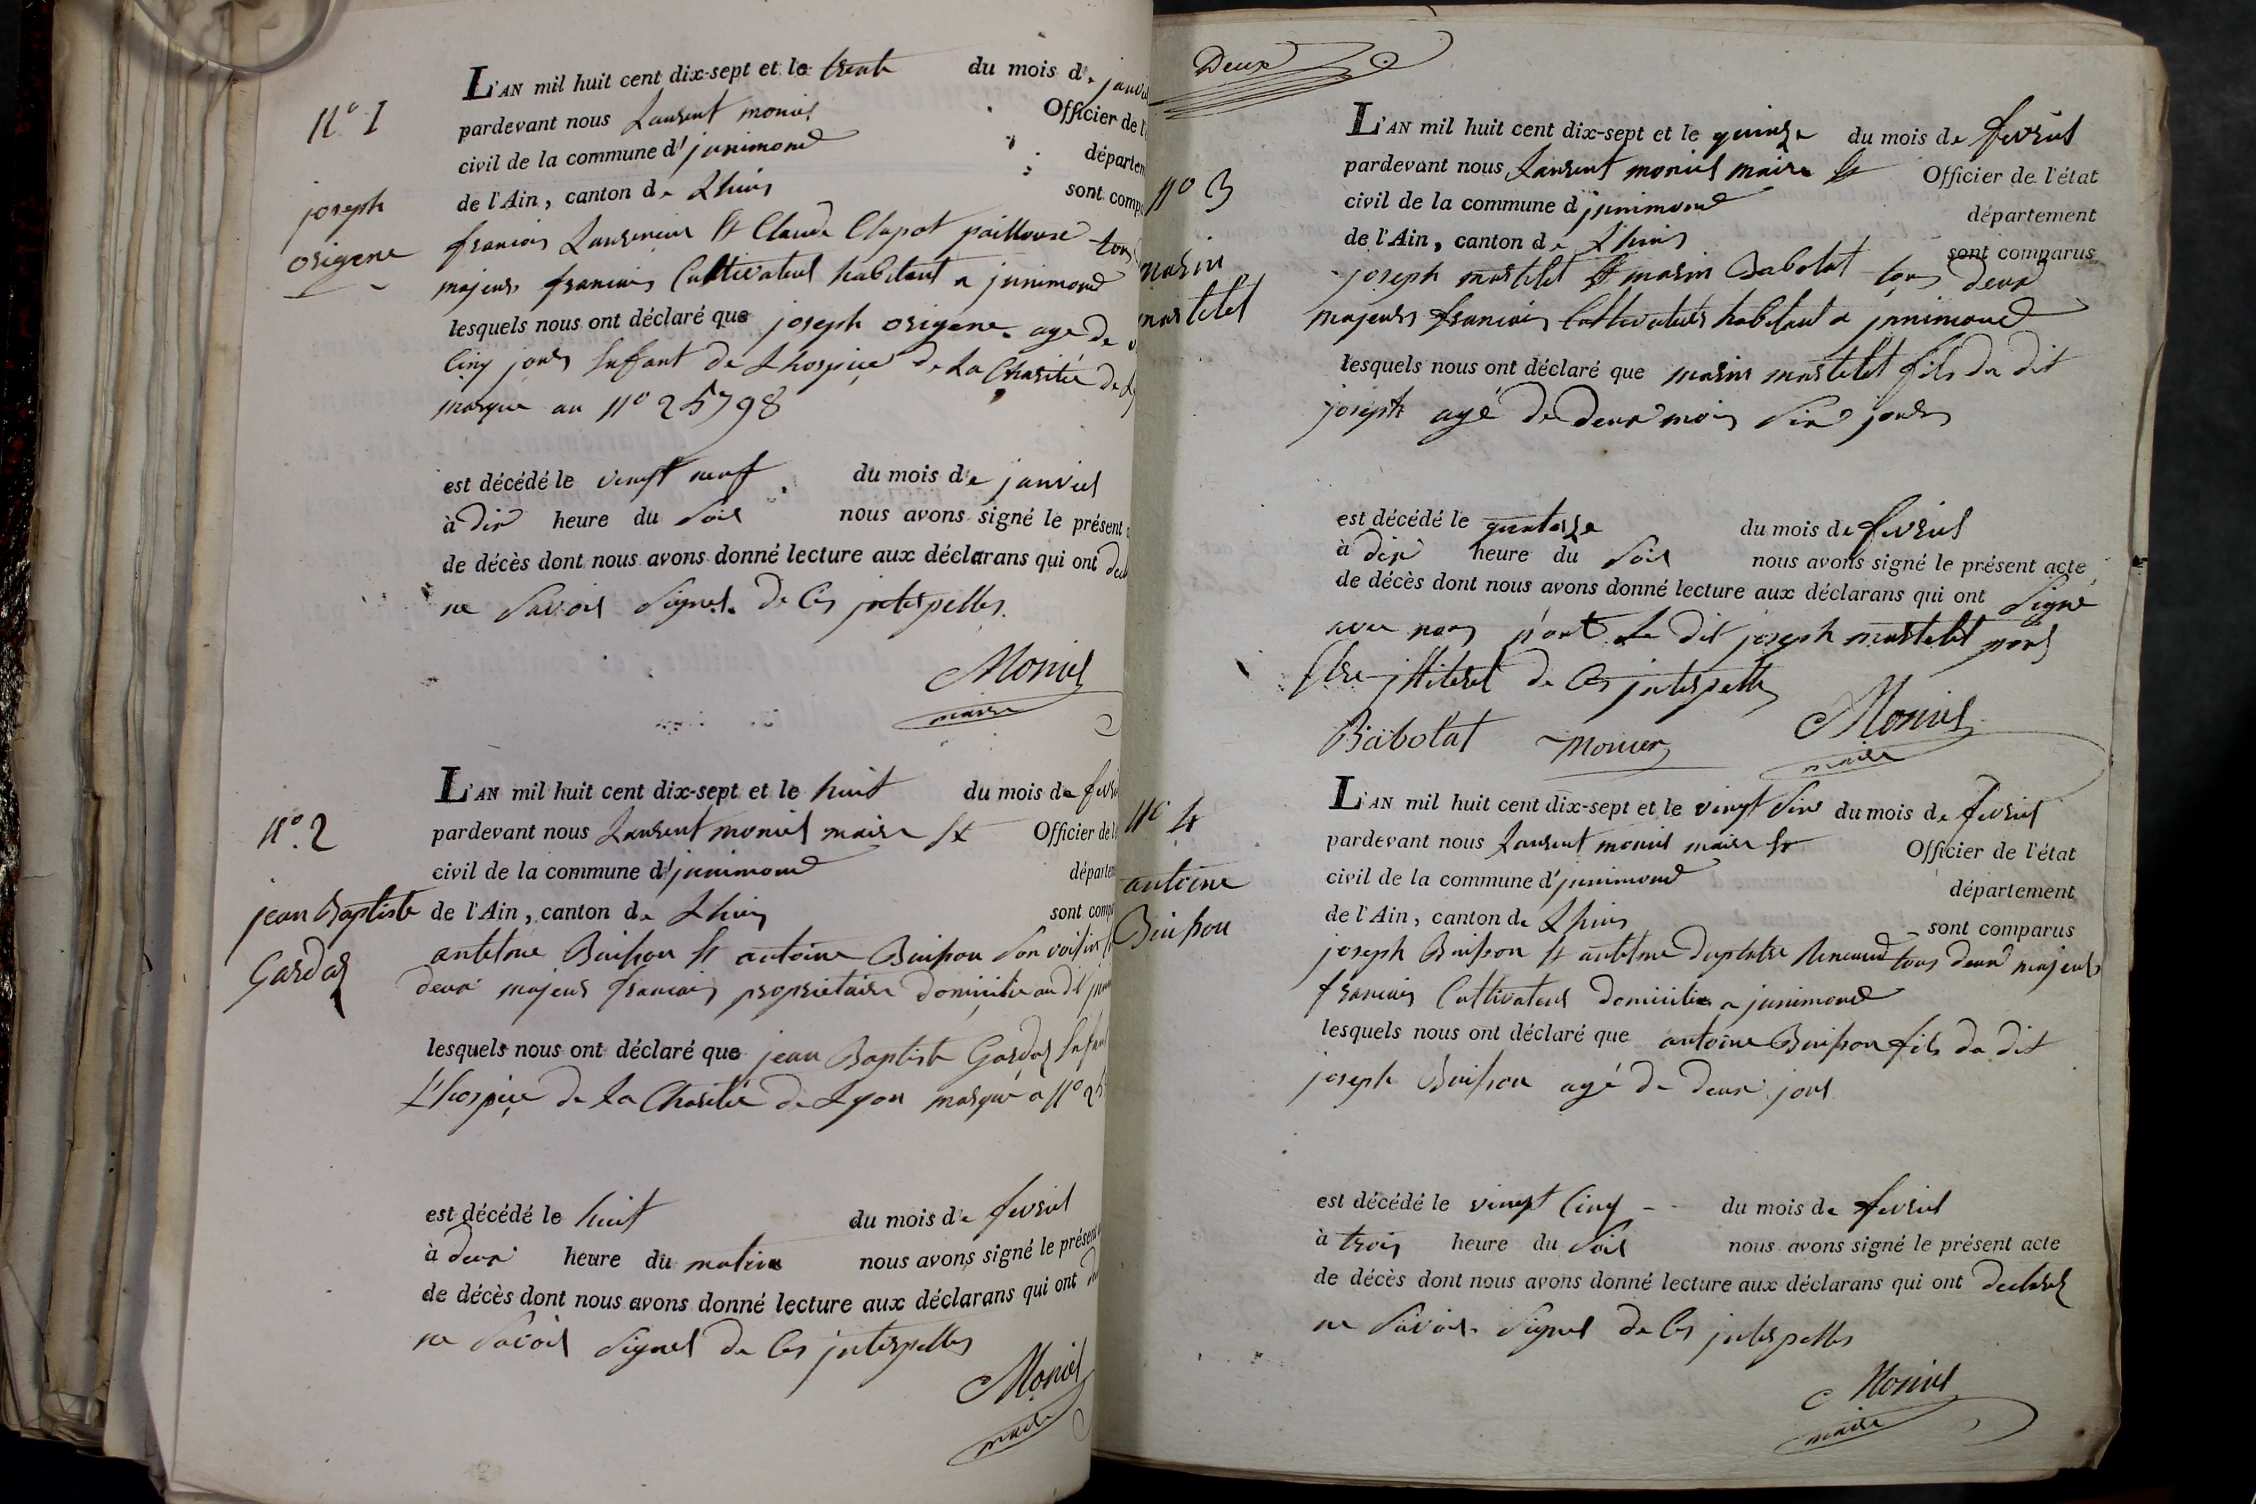 N.° 1
joseph
origene
L'AN mil huit cent dix-sept et le trente du mois de janvie
pardevant nous Laurent monier Officier de l'
civil de la commune d'junimond départem
de l'Ain, canton de Lhuis sont comp
francois Laurencin et Claude Clapot paillouse tous
majeurs francais Cultivateur habitant a junimond
lesquels nous ont déclaré que joseph origene agé de
Cinq jours Enfant de Lhospice de La Charité de Ly
marque au N° 25798
est décédé le vingt neuf du mois de janvier
à dix heure du soir nous avons signé le présent
de décès dont nous avons donné lecture aux déclarans qui ont
ne savoir signer de Ces jnterpelles.
Monier
maire
N.° 2
jean Baptiste
Gardas
L'AN mil huit cent dix-sept et le huit du mois de fevri
pardevant nous Laurent monier maire et Officier de l'
civil de la commune d'junimond départem
de l'Ain, canton de Lhuis sont comp
antelme Buisson et antoine Buisson son voisin
deux majeur francais proprietaire domicilie au dit
lesquels nous ont déclaré que jean Baptiste Gardas Enfant
L'hospice de La Charité de Lyon marqué a N° 25
est décédé le huit du mois de fevrier
à deux heure du matin nous avons signé le présent
de décès dont nous avons donné lecture aux déclarans qui ont
ne savoir signer de Ces jnterpelles
Monier
maire
Deux
N° 3
marin
martelet
L'AN mil huit cent dix-sept et le quinze du mois de fevrier
pardevant nous Laurent monier maire et Officier de l'état
civil de la commune d junimond département
de l'Ain, canton de Lhuis sont comparus
joseph martelet et marin Babolat tous deux
majeurs francais Cultivateurs habitant a junimond
lesquels nous ont déclaré que marin martelet fils du dit
joseph agé de deux mois dix jours
est décédé le quatorze du mois de fevrier
à dix heure du soir nous avons signé le présent acte
de décès dont nous avons donné lecture aux déclarans qui ont signé
avec nous n'ont Le dit joseph martelet pour
Etre jlliteré de Ces jnterpelle
Babolat monier Monier
maire
N° 4
antoine
Buisson
L'AN mil huit cent dix-sept et le vingt six du mois de fevrier
pardevant nous Laurent monier maire et Officier de l'état
civil de la commune d'junimond département
de l'Ain, canton de Lhuis sont comparus
joseph Buisson et antelme tous deux majeurs
francais Cultivateur domicilie a junimond
lesquels nous ont déclaré que antoine Buisson fils du dit
joseph Buisson agé de deux jour
est décédé le vingt Cinq du mois de fevrier
à trois heure du soir nous avons signé le présent acte
de décès dont nous avons donné lecture aux déclarans qui ont declarer
ne savoir signer de Ces jnterpelles
Monier
maire